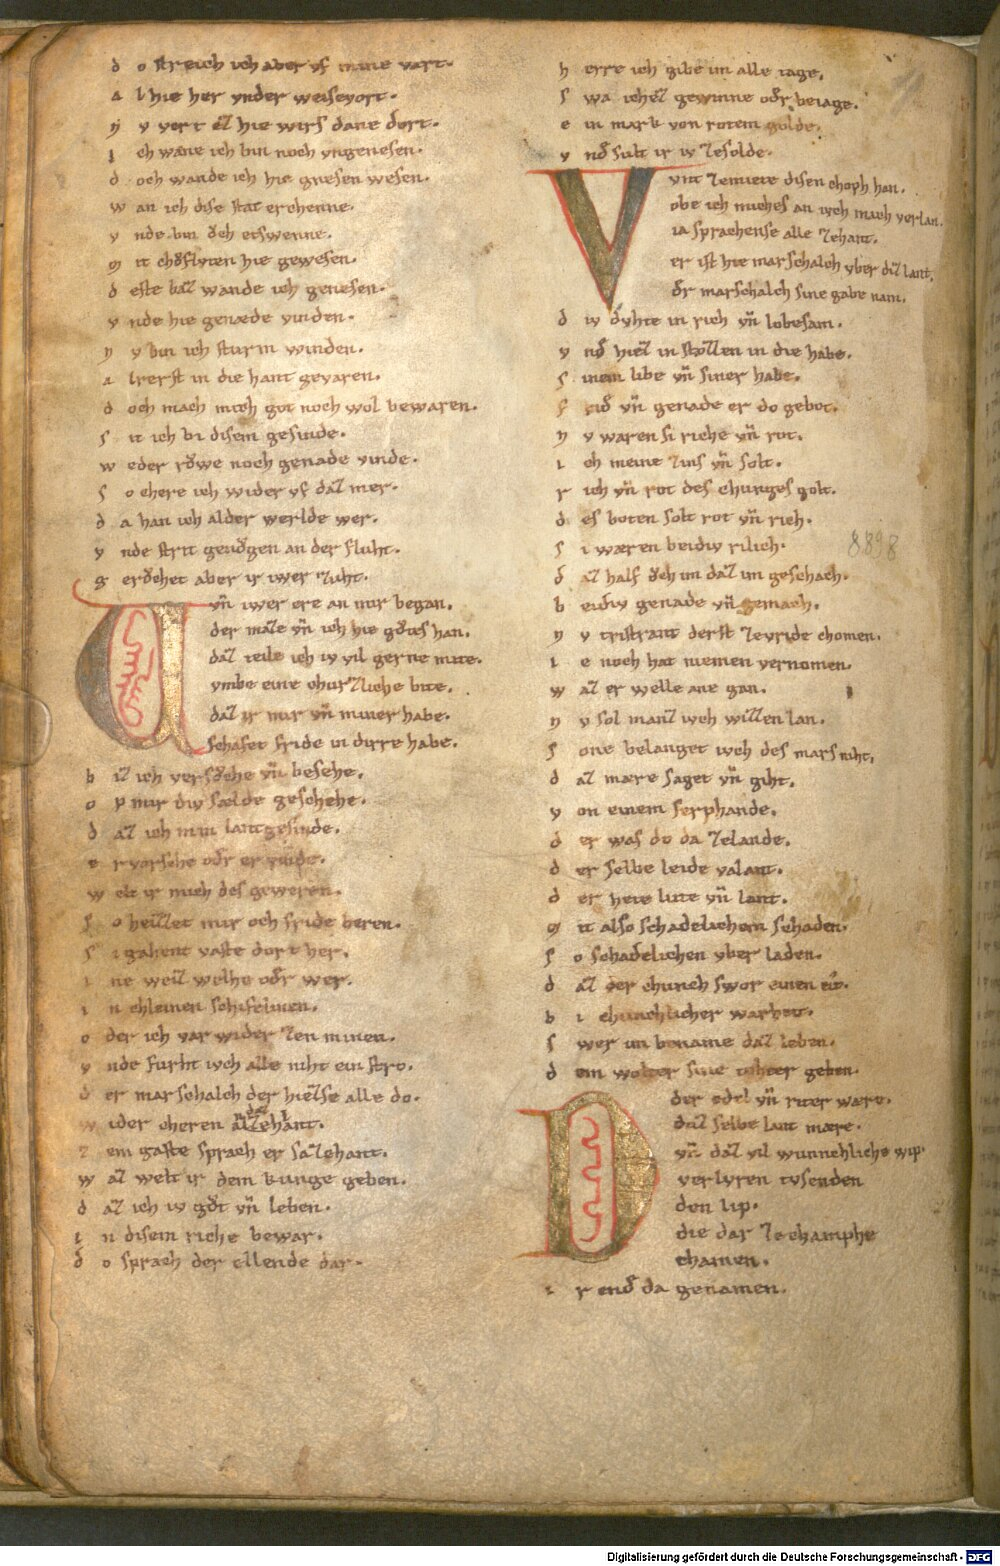 d o streich ich aber vf mine vart.
a l hie her vnder weisevort.
n v vert ez hie wirs dane dort.
i ch wæne ich bin noch vngenesen.
d och wande ich hie gnesen wesen.
w an ich dise stat erchenne.
v nde bin ǒch etswenne.
m it chǒflvten hie gewesen.
d este baz wande ich genesen.
v nde hie genæde vinden.
n v bin ich sturm winden.
a lrerst in die hant gevaren.
d och mach mich got noch wol bewaren.
s it ich bi disem gesinde.
w eder rǒwe noch genade vinde.
s o chere ich wider vf daz mer.
d a han ich alder werlde wer.
v nde strit genǒgen an der fluht.
g erǒchet aber ir iwer zuht.
vn̄ iwer ere an mir began.
der maze vn̄ ich hie gǒtes han.
daz teile ich iv vil gerne mite.
vmbe eine churzliche bite.
daz ir mir vn̄ miner habe.
Schafet fride in dirre habe.
b iz ich versǒche vn̄ besehe.
o p mir div sælde geschehe.
d az ich min lantgesinde.
e rvarsche odr er vinde.
w elt ir mich des geweren.
s o heizzet mir och fride beren.
s i gahent vaste dort her.
i ne weiz welhe odr wer.
i n chleinen schifelinen.
o der ich var wider zen minen.
v nde furht iwch alle niht ein stro.
d er marschalch der hiezse alle do.
w ider cheren al zehant.
z em gaste sprach er sazehant.
w az welt ir dem kunge geben.
d az ich iv gǒt vn̄ leben.
i n disem riche bewar.
d o sprach der ellende dar.
h erre ich gibe im alle tage.
s wa ichez gewinne odr beiage.
e in mark von rotem golde.
v nd sult ir iv zesolde.
Vnt zemiete disen choph han.
obe ich miches an iwch mach verlan.
ia sprachense alle zehant.
er ist hie marschalch vber diz lant.
dr marschalch sine gabe nam.
d iv dvhte in rich vn̄ lobesam.
v nd hiez in stozzen in die habe.
s inem libe vn̄ siner habe.
f rid vn̄ genade er do gebot.
n v waren si riche vn̄ rot.
i ch meine zins vn̄ solt.
r ich vn̄ rot des chunges golt.
d es boten solt rot vn̄ rich.
s i wæren beidiv rilich.
d az half ǒch im daz im geschach.
b eidiv genade vn̄ gemach.
n v tristrant derst zevride chomen.
i e noch hat niemen vernomen.
w az er welle ane gan.
n v sol manz iwch wizzen lan.
s one belanget iwch des mærs niht.
d az mære saget vn̄ giht.
v on einem serphande.
d er was do da zelande.
d er selbe leide valant.
d er hete lute vn̄ lant.
m it also schadelichem schaden.
s o schadelichen vber laden.
d az der chunich swor einen eit.
b i chunchlicher warheit.
s wer im bename daz leben.
d em wolter sine tohter geben.
der edel vn̄ riter wære.
diz selbe lant mære.
vn̄ daz vil wunnchliche wip.
verlvren tvsenden
den lip.
die dar ze champhe
chamen.
i r end da genamen.
8898
Digitalisierung gefördert durch die Deutsche Forschungsgemeinschaft - DFG